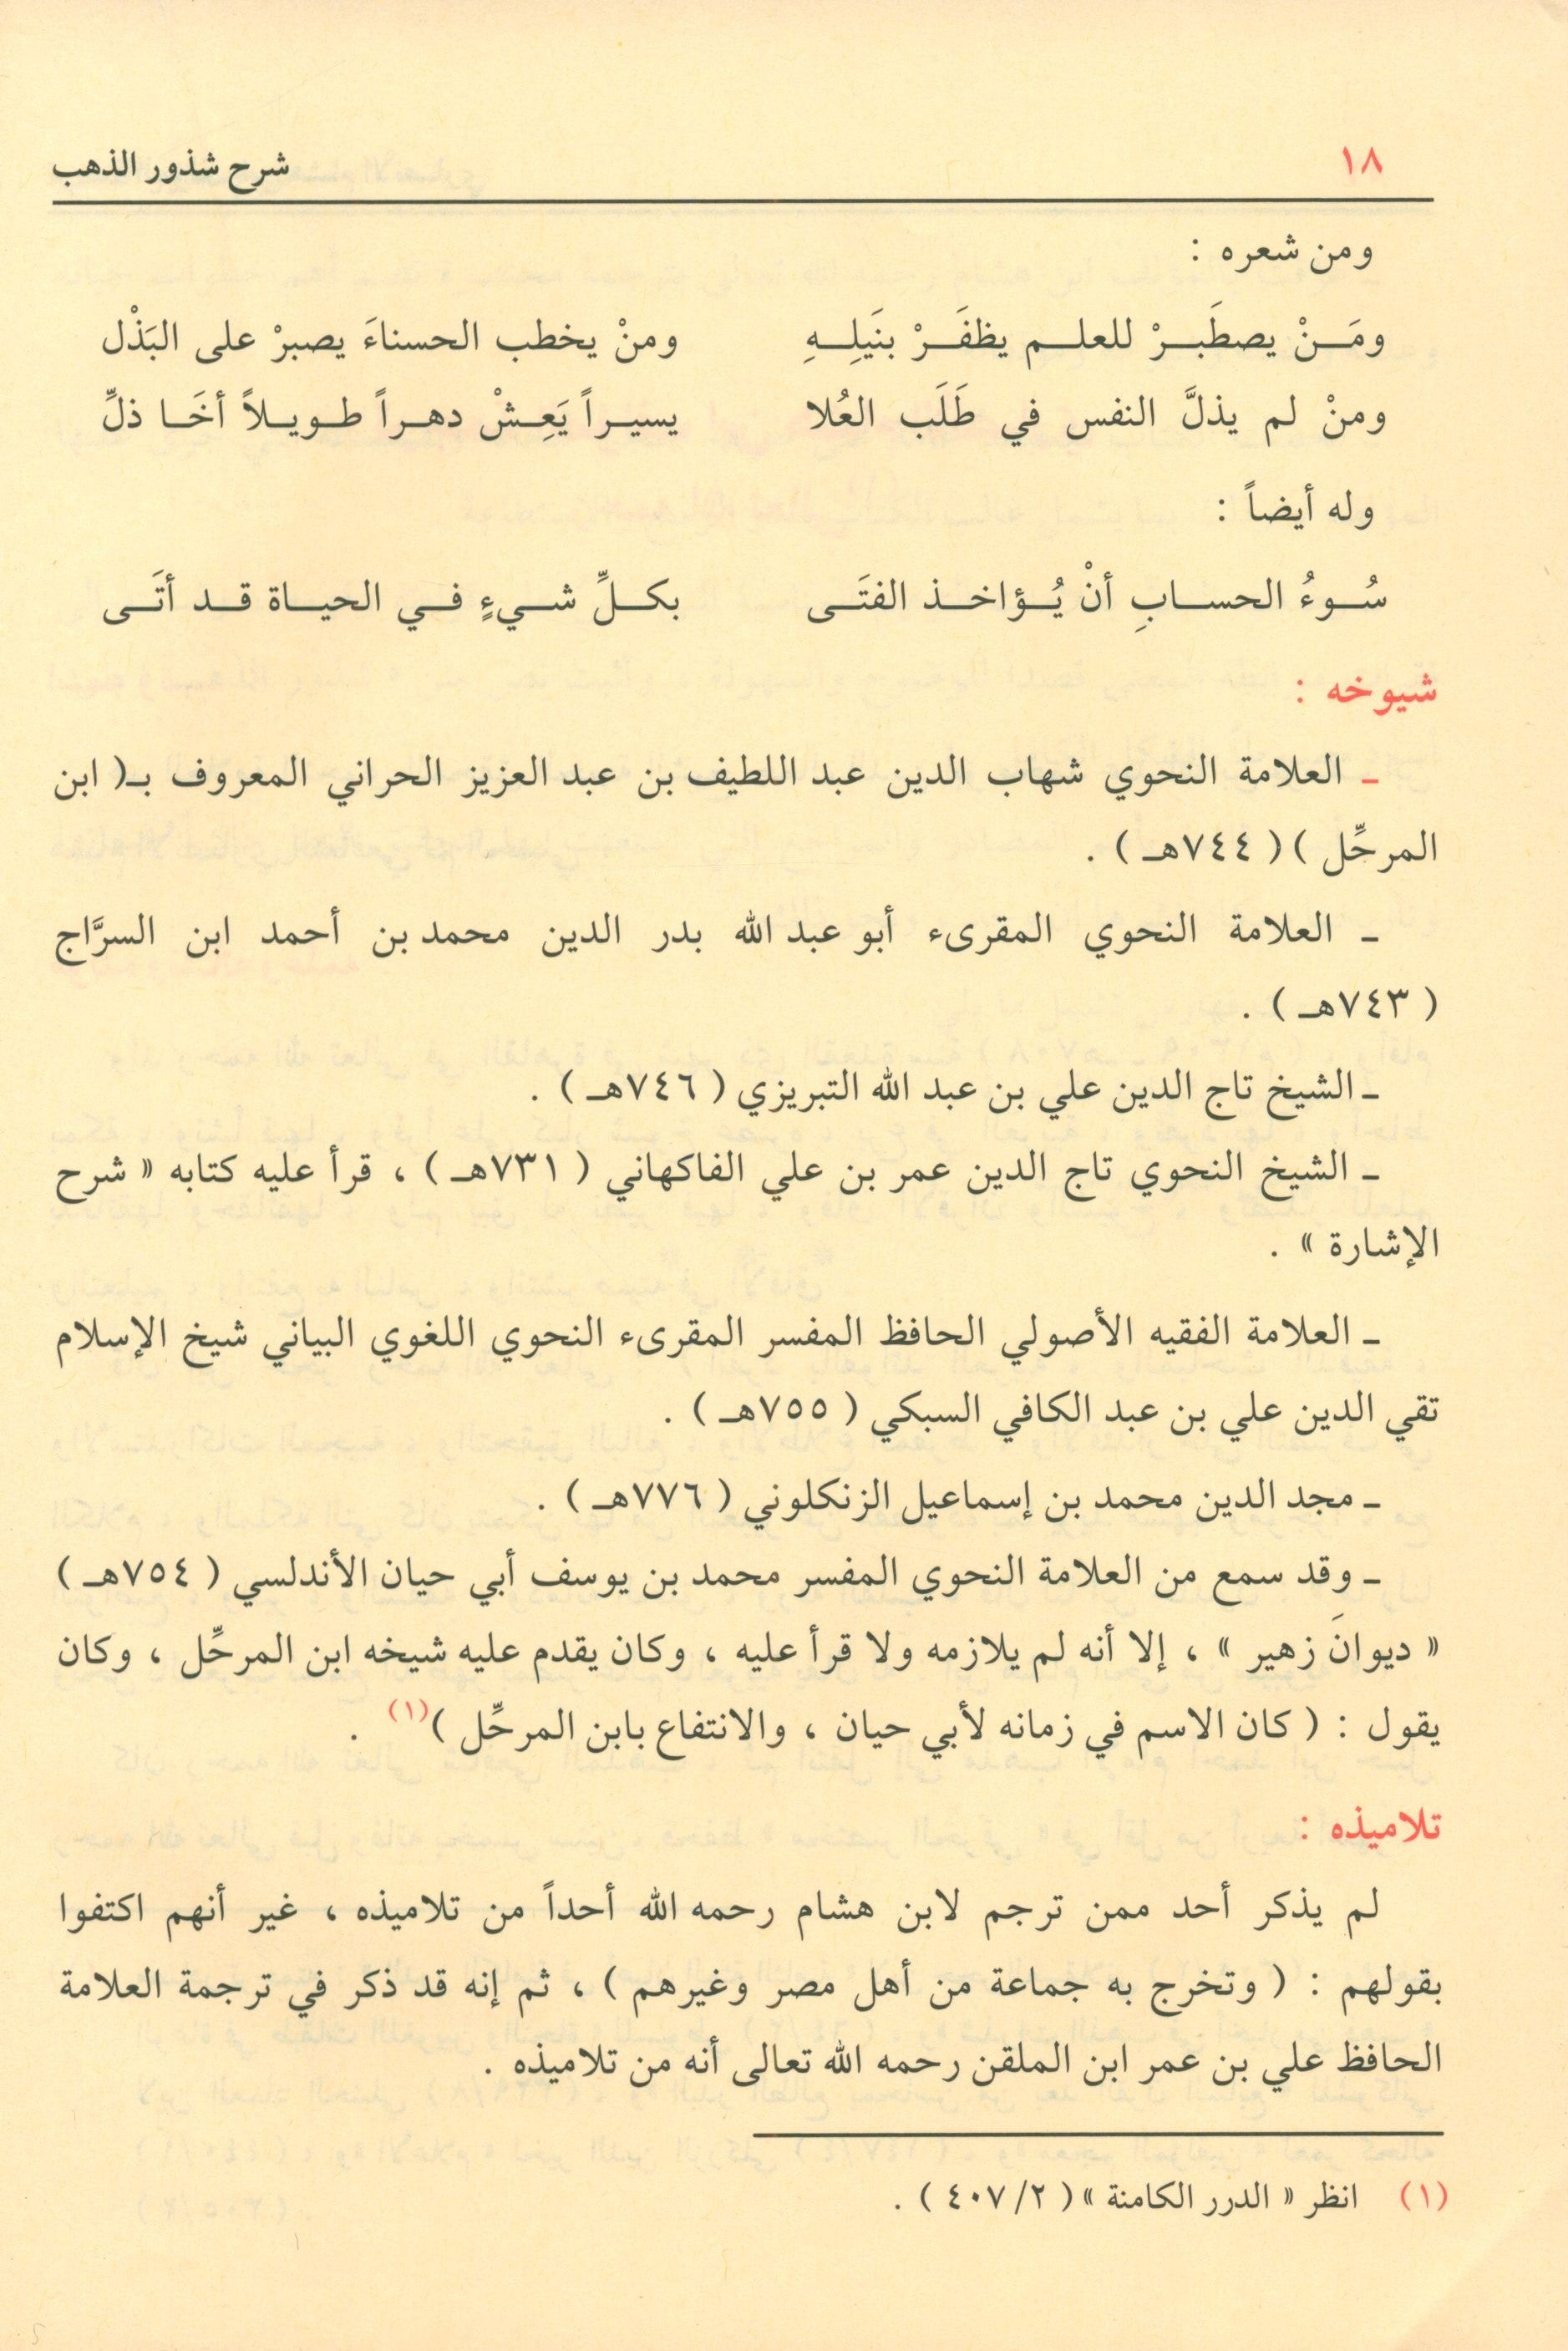 ١٨ شرح شذور الذهب
ومن شعره :
ومَـنْ يصطَبـرْ للعلـم يظفَـرْ بنَيلِـهِ ومنْ يخطب الحسناءَ يصبرْ على البَذْل
ومنْ لم يذلَّ النفس في طَلَب العُلا يسيـراً يَعِـشْ دهـراً طـويـلاً أخَـا ذلِّ
وله أيضاً :
سُـوءُ الحسـابِ أنْ يُـؤاخـذ الفتَـى بكـلِّ شـيءٍ فـي الحيـاة قـد أتَـى
شيوخه :
ـ العلامة النحوي شهاب الدين عبد اللطيف بن عبد العزيز الحراني المعروف بـ( ابن
المرحِّل ) ( ٧٤٤هـ ) .
ـ العلامة النحوي المقرىء أبو عبد الله بدر الدين محمد بن أحمد ابن السرَّاج
( ٧٤٣هـ ) .
ـ الشيخ تاج الدين علي بن عبد الله التبريزي ( ٧٤٦هـ ) .
ـ الشيخ النحوي تاج الدين عمر بن علي الفاكهاني ( ٧٣١هـ ) ، قرأ عليه كتابه « شرح
الإشارة » .
ـ العلامة الفقيه الأصولي الحافظ المفسر المقرىء النحوي اللغوي البياني شيخ الإسلام
تقي الدين علي بن عبد الكافي السبكي ( ٧٥٥هـ ) .
ـ مجد الدين محمد بن إسماعيل الزنكلوني ( ٧٧٦هـ ) .
ـ وقد سمع من العلامة النحوي المفسر محمد بن يوسف أبي حيان الأندلسي ( ٧٥٤هـ )
« ديوانَ زهير » ، إلا أنه لم يلازمه ولا قرأ عليه ، وكان يقدم عليه شيخه ابن المرحِّل ، وكان
يقول : ( كان الاسم في زمانه لأبي حيان ، والانتفاع بابن المرحِّل )(١) .
تلاميذه :
لم يذكر أحد ممن ترجم لابن هشام رحمه الله أحداً من تلاميذه ، غير أنهم اكتفوا
بقولهم : ( وتخرج به جماعة من أهل مصر وغيرهم ) ، ثم إنه قد ذكر في ترجمة العلامة
الحافظ علي بن عمر ابن الملقن رحمه الله تعالى أنه من تلاميذه .
(١) انظر « الدرر الكامنة » ( ٢/ ٤٠٧ ) .